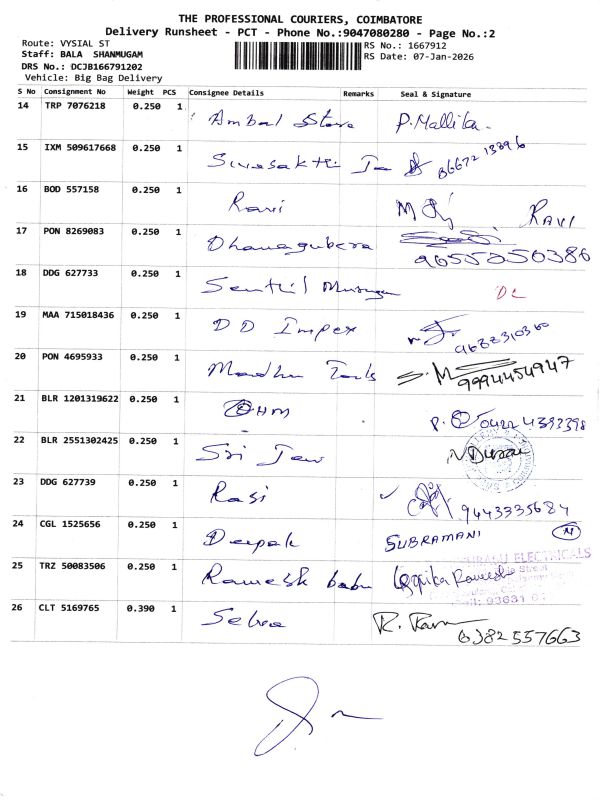 THE PROFESSIONAL COURIERS, COIMBATORE
Delivery Runsheet - PCT - Phone No.:9047080280 - Page No.:2
Route: VYSIAL ST RS No.: 1667912
Staff: BALA SHANMUGAM RS Date: 07-Jan-2026
DRS No.: DCJB166791202
Vehicle: Big Bag Delivery
S No Consignment No Weight PCS Consignee Details Remarks Seal & Signature
14 TRP 7076218 0.250 1 Ambal Store P. Mallika.
15 IXM 509617668 0.250 1 Sivasakthi
16 BOD 557158 0.250 1 Ravi RAVI
17 PON 8269083 0.250 1 Dhanagubera 9655250386
18 DDG 627733 0.250 1 Senthil Murugan DL
19 MAA 715018436 0.250 1 DD Impex
20 PON 4695933 0.250 1 Madhu S. M 9994454947
21 BLR 1201319622 0.250 1 OHM 0422 4392398
22 BLR 2551302425 0.250 1 Sri Jew N. Durai
23 DDG 627739 0.250 1 Rasi 9443335684
24 CGL 1525656 0.250 1 Deepak SUBRAMANI
25 TRZ 50083506 0.250 1 Ramesh babu Gopika Ramesh
ELECTRICALS
26 CLT 5169765 0.390 1 Selva 6382557663